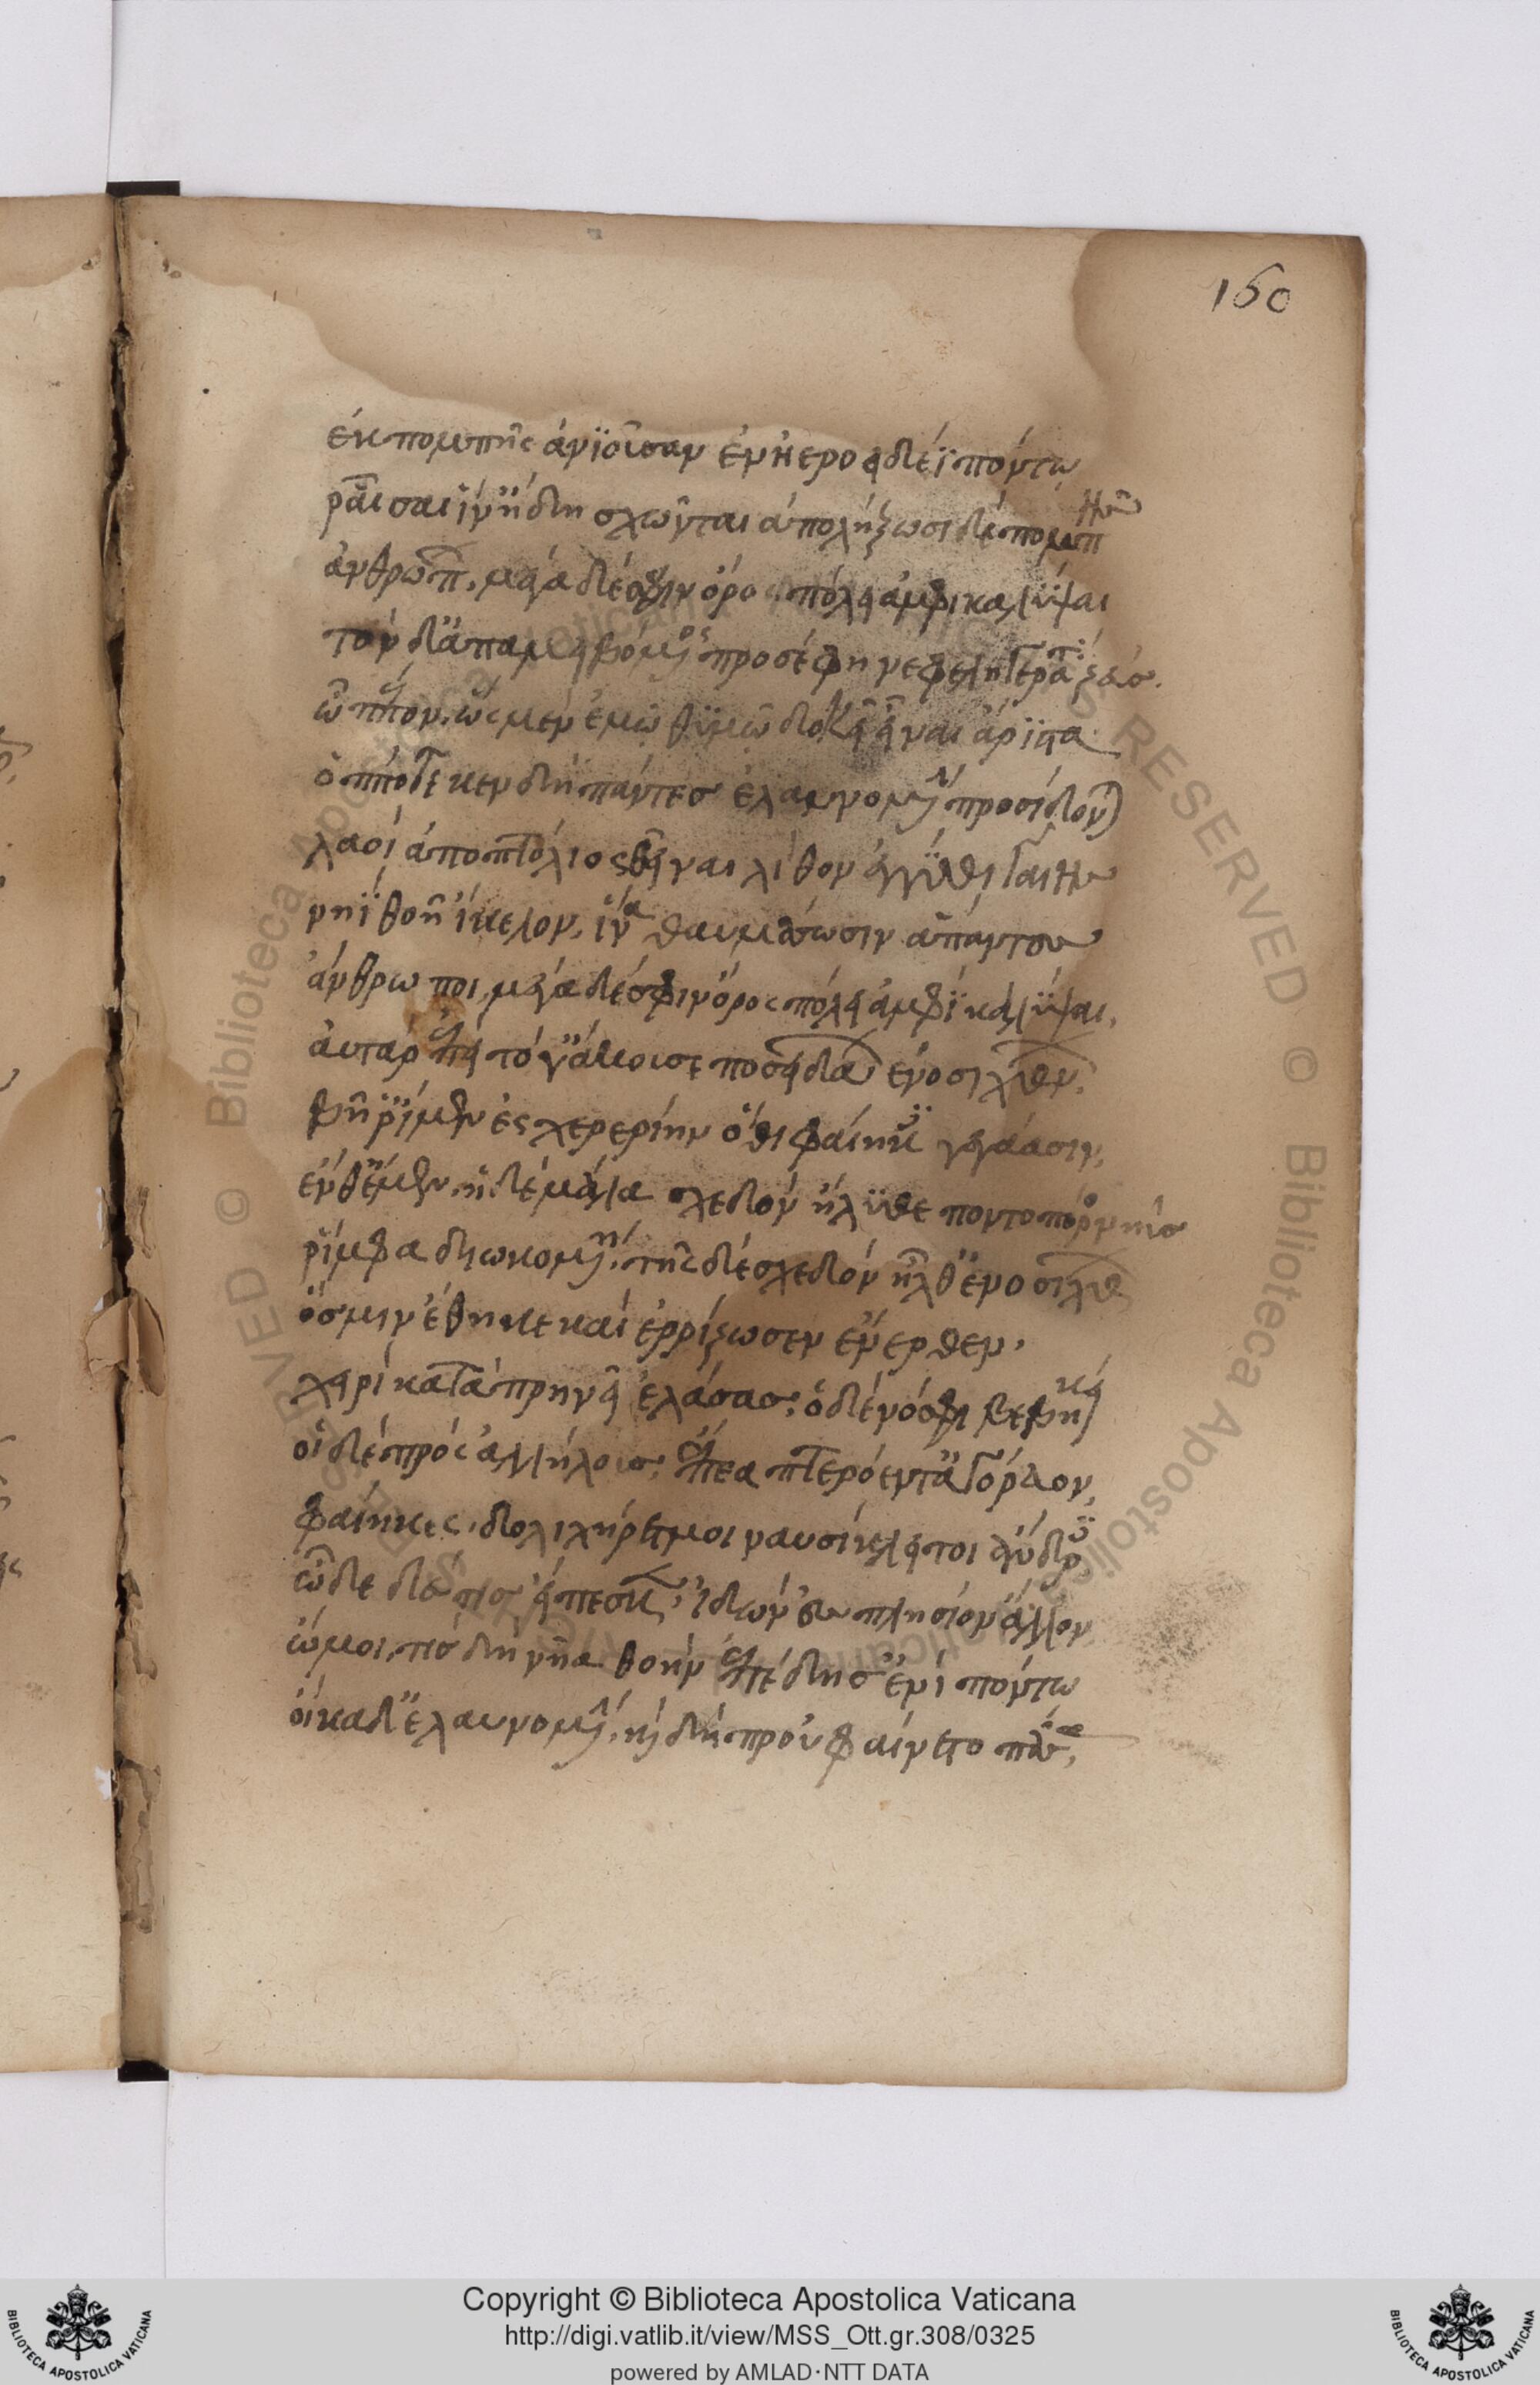 160
ἐκ πομπῆς ἀνϊοῦσαν ἐν ἠεροειδέϊ πόντω
ρᾶισαι ἵν ἤδη σχῶνται ἀπολήξωσι δὲ πομπῆς
ἀνθρώπων, μέγα δέ σφιν ὄρος πόλει ἀμφικαλύψαι
τὸν δ' ἀπαμειβόμενος προσέφη νεφεληγερέτα ζεύσ.
ὦ πέπον, ὡς μὲν ἐμῶ θϋμῶ δοκεῖ εἶναι ἄρϊστα
ὁππότε κεν δὴ πάντεσ ἐλαυνομένην προσίδωνται
λαοὶ ἀπὸ πτόλιος θεῖναι λίθον ἐγγύθι γαίης
νηῒ θοῆ ἴκελον, ἵνα θαυμάζωσιν ἅπαντες
ἄνθρωποι, μέγα δέ σφιν ὄρος πόλει ἀμφϊκαλύψαι.
αὐτὰρ ἐπεὶ τό γ' ἄκουσε ποσειδάων ἐνοσίχθων.
βῆ ῥ' ἴμεν ἐς σχερίην ὅθι φαίηκες γεγάασιν,
ἔνθ' ἔμεν. ἡ δὲ μάλα σχεδὸν ἤλϋθε ποντοπόρος νηῦσ
ρίμφα διωκομένη. τῆς δὲ σχεδὸν ἦλθ' ἐνοσίχθων
ὅσ μιν ἔθηκε καὶ ἐρρίζωσεν ἔνερθεν,
χειρὶ καταπρηνεῖ ἐλάσασ, ὁ δὲ νόσφι βεβήκει
οἱ δὲ πρὸς ἀλλήλουσ, ἔπεα πτερόεντ' ἀγόρευον,
φαίηκες, δολιχήρετμοι ναυσίκλειτοι ἄνδρες
ὧδε δέ τισ εἴπεσκεν, ἰδὼν ἐσ πλησίον ἄλλον
ὤμοι, τίσ δὴ νῆα θοὴν ἐπέδησ' ἐνὶ πόντω
οἴκαδ' ἐλαυνομένην, καὶ δὴ προὐφαίνετο πᾶσα,
Copyright © Biblioteca Apostolica Vaticana
http://digi.vatlib.it/view/MSS_Ott.gr.308/0325
powered by AMLAD·NTT DATA